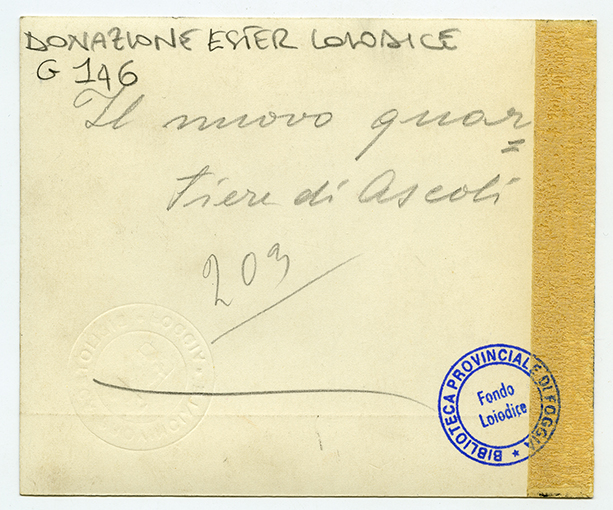 DONAZIONE ESTER LOIODICE
G 146
Il nuovo quar=
tiere di Ascoli
203
BIBLIOTECA PROVINCIALE DI FOGGIA
Fondo
Loiodice